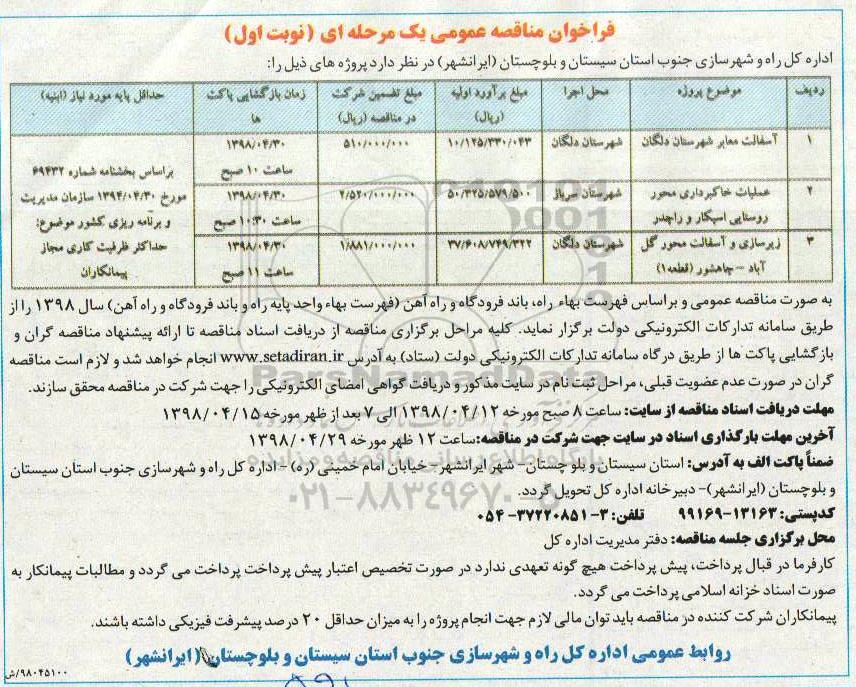 فراخوان مناقصه عمومی یک مرحله ای (نوبت اول)
اداره کل راه و شهرسازی جنوب استان سیستان و بلوچستان (ایرانشهر) در نظر دارد پروژه های ذیل را:
ردیف موضوع پروژه محل اجرا مبلغ برآورد اولیه (ریال) مبلغ تضمین شرکت در مناقصه (ریال) زمان بازگشایی پاکت ها حداقل پایه مورد نیاز (ابنیه)
۱ آسفالت معابر شهرستان دلگان شهرستان دلگان ۱۰/۱۲۵/۳۳۰/۰۴۳ ۵۱۰/۰۰۰/۰۰۰ ۱۳۹۸/۰۴/۳۰ ساعت ۱۰ صبح
۲ عملیات خاکبرداری محور روستایی اسپکار و راچدر شهرستان سرباز ۵۰/۳۲۵/۵۷۹/۵۰۰ ۲/۵۲۰/۰۰۰/۰۰۰ ۱۳۹۸/۰۴/۳۰ ساعت ۱۰:۳۰ صبح
۳ زیرسازی و آسفالت محور گل آباد – چاهشور (قطعه۱) شهرستان دلگان ۳۷/۶۰۸/۷۴۹/۳۲۲ ۱/۸۸۱/۰۰۰/۰۰۰ ۱۳۹۸/۰۴/۳۰ ساعت ۱۱ صبح
براساس بخشنامه شماره ۶۹۴۳۲
مورخ ۱۳۹۴/۰۴/۳۰ سازمان مدیریت
و برنامه ریزی کشور موضوع:
حداکثر ظرفیت کاری مجاز
پیمانکاران
به صورت مناقصه عمومی و براساس فهرست بهاء راه، باند فرودگاه و راه آهن (فهرست بهاء واحد پایه راه و باند فرودگاه و راه آهن) سال ۱۳۹۸ را از
طریق سامانه تدارکات الکترونیکی دولت برگزار نماید. کلیه مراحل برگزاری مناقصه از دریافت اسناد مناقصه تا ارائه پیشنهاد مناقصه گران و
بازگشایی پاکت ها از طریق درگاه سامانه تدارکات الکترونیکی دولت (ستاد) به آدرس www.setadiran.ir انجام خواهد شد و لازم است مناقصه
گران در صورت عدم عضویت قبلی، مراحل ثبت نام در سایت مذکور و دریافت گواهی امضای الکترونیکی را جهت شرکت در مناقصه محقق سازند.
مهلت دریافت اسناد مناقصه از سایت: ساعت ۸ صبح مورخه ۱۳۹۸/۰۴/۱۲ الی ۷ بعد از ظهر مورخه ۱۳۹۸/۰۴/۱۵
آخرین مهلت بارگذاری اسناد در سایت جهت شرکت در مناقصه:ساعت ۱۲ ظهر مورخه ۱۳۹۸/۰۴/۲۹
ضمناً پاکت الف به آدرس: استان سیستان و بلوچستان- شهر ایرانشهر- خیابان امام خمینی (ره) - اداره کل راه و شهرسازی جنوب استان سیستان
و بلوچستان (ایرانشهر)- دبیرخانه اداره کل تحویل گردد.
کدپستی: ۱۳۱۶۳-۹۹۱۶۹ تلفن: ۳-۳۷۲۲۰۸۵۱-۰۵۴
محل برگزاری جلسه مناقصه: دفتر مدیریت اداره کل
کارفرما در قبال پرداخت، پیش پرداخت هیچ گونه تعهدی ندارد در صورت تخصیص اعتبار پیش پرداخت پرداخت می گردد و مطالبات پیمانکار به
صورت اسناد خزانه اسلامی پرداخت می گردد.
پیمانکاران شرکت کننده در مناقصه باید توان مالی لازم جهت انجام پروژه را به میزان حداقل ۲۰ درصد پیشرفت فیزیکی داشته باشند.
روابط عمومی اداره کل راه و شهرسازی جنوب استان سیستان و بلوچستان (ایرانشهر)
۹۸۰۴۵۱۰۰/ش
ParsNamadData
۰۲۱-۸۸۳۴۹۶۷۰-۵